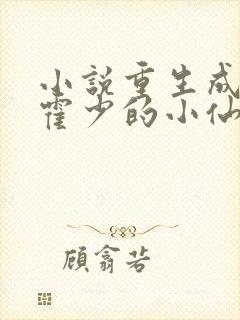 小说重生成
霍少的小仙
顾翕若